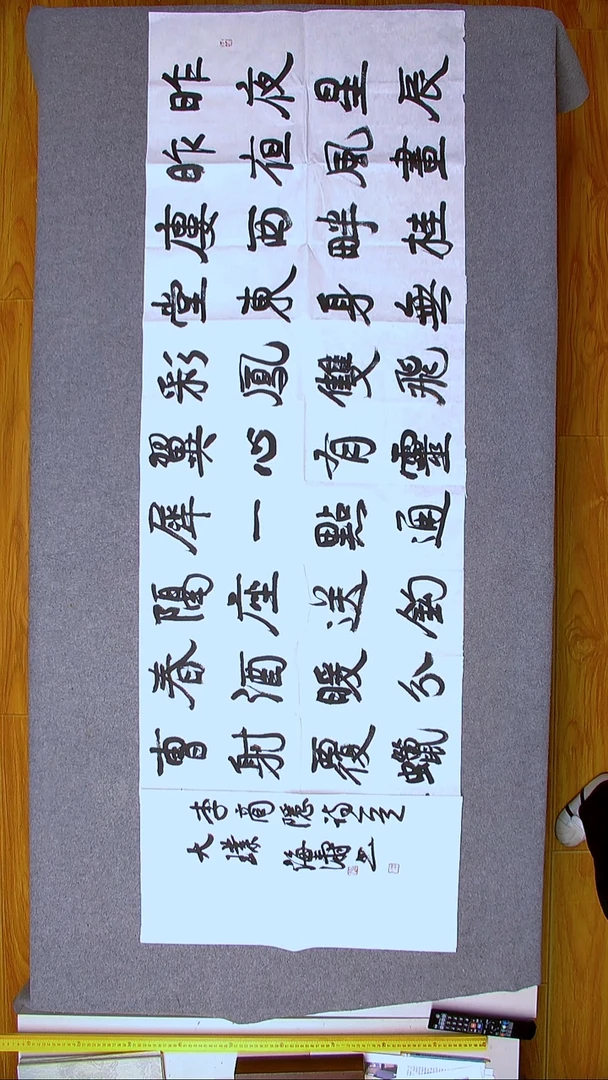 昨夜星辰
昨夜風畫
廔西畔桂
堂東身無
彩鳳雙飛
翼心有靈
犀一點通
隔座送鈎
春酒暖分
曹射覆蠟
李商隱詩
大璞